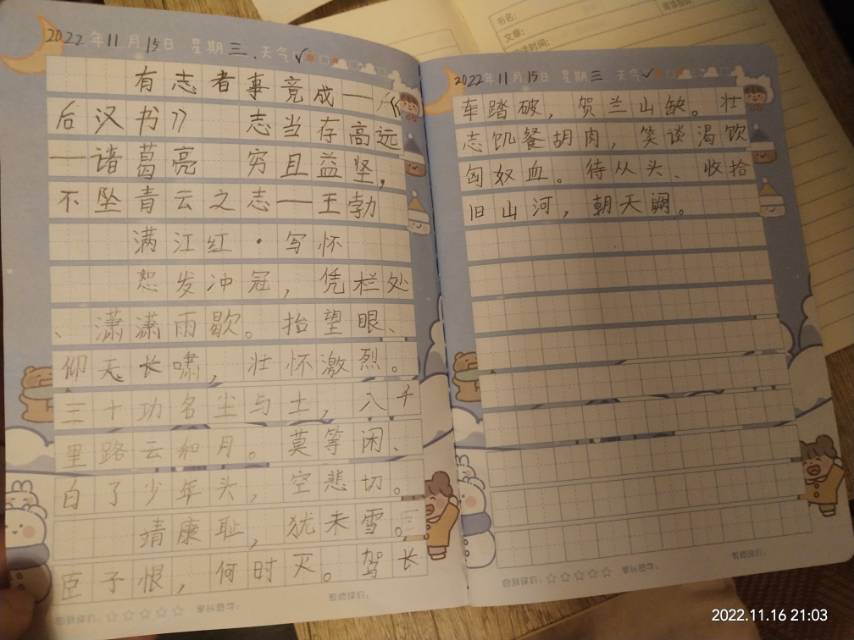 2022年11月15日 星期三 天气✓
有志者事竟成——《
后汉书》 志当存高远
——诸葛亮 穷且益坚,
不坠青云之志——王勃
满江红·写怀
怒发冲冠, 凭栏处
、潇潇雨歇。抬望眼、
仰天长啸, 壮怀激烈。
三十功名尘与土, 八千
里路云和月。莫等闲、
白了少年头, 空悲切。
靖康耻, 犹未雪。
臣子恨, 何时灭。驾长
自我评价: ☆☆☆☆☆ 家长签字: 教师评价:
2022年11月15日 星期三 天气✓
车踏破, 贺兰山缺。壮
志饥餐胡肉, 笑谈渴饮
匈奴血。待从头、收拾
旧山河, 朝天阙。
自我评价: ☆☆☆☆☆ 家长签字: 教师评价:
书名:
文章:
阅读时间:
2022.11.16 21:03